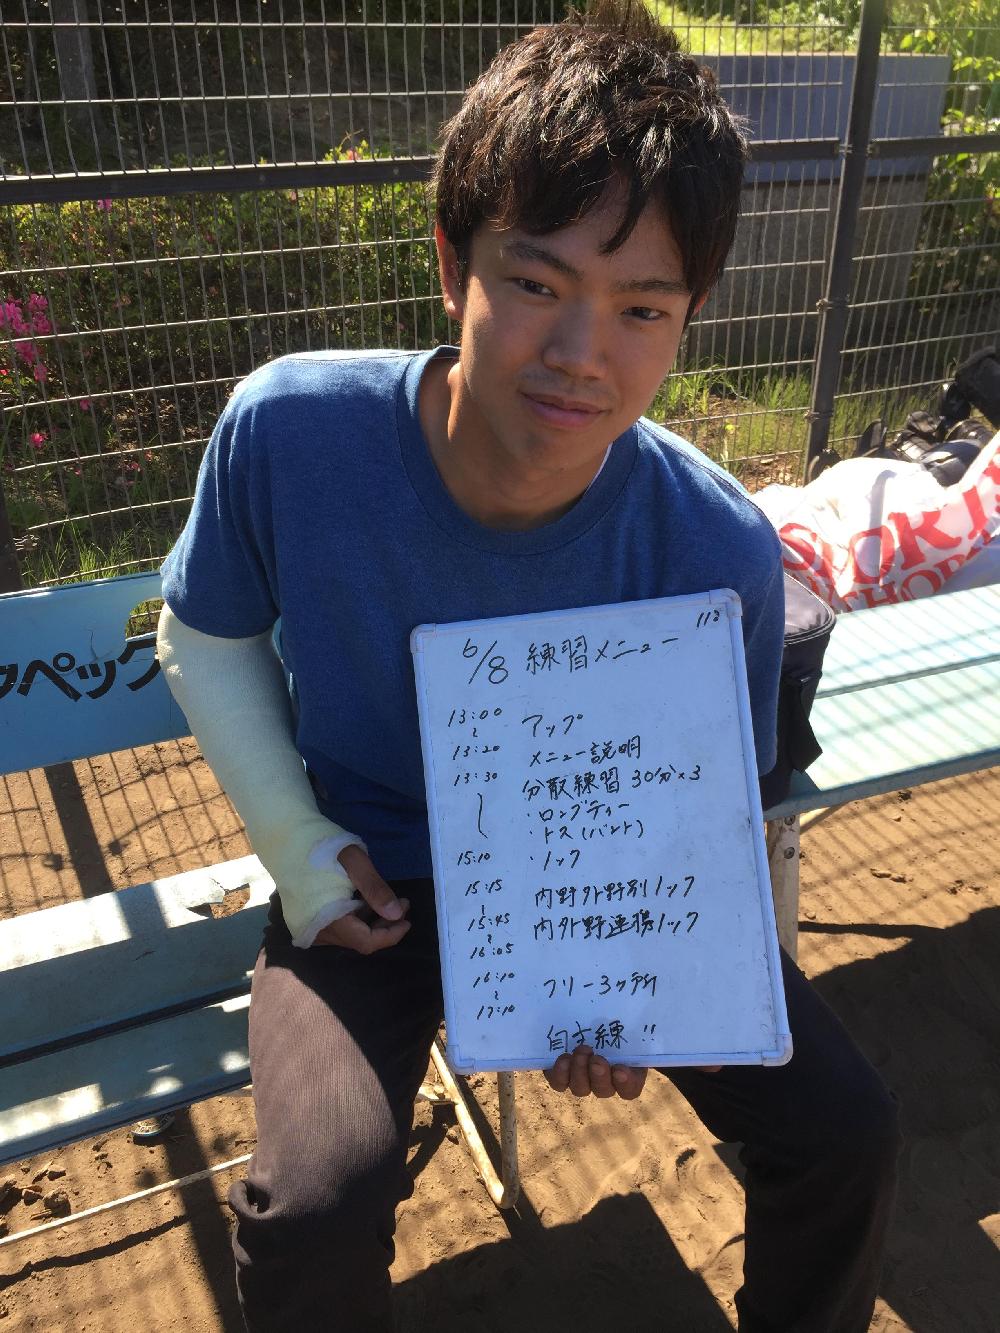 6/8 練習メニュー
113
13:00
~
13:20
アップ
メニュー説明
13:30
分散練習 30分×3
・ロングティー
・トス(バント)
15:10
・ノック
15:15
~
15:45
内野外野別ノック
~
16:05
内外野連携ノック
16:10
~
17:10
フリー3ヶ所
自主練!!
ペック